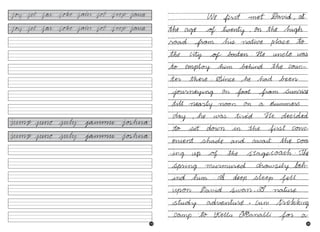 joy jet jar joke join jet jeep java
joy jet jar joke join jet jeep java
jump june july jasmine joshua
jump june july jasmine joshua
We first met David, at
the age of twenty, on the high
road from his native place to
the city of Boston. His uncle was
to employ him behind the coun-
ter there. Since he had been
journeying on foot from sunrise
till nearly noon on a summers
day, he was tired. He decided
to sit down in the first conv-
enient shade and await the com
ing up of the stagecoach. The
spring murmured drowsily beh-
ind him. A deep sleep fell
upon David Swan. A nature
study adventure : Cun trekking
camp to for a